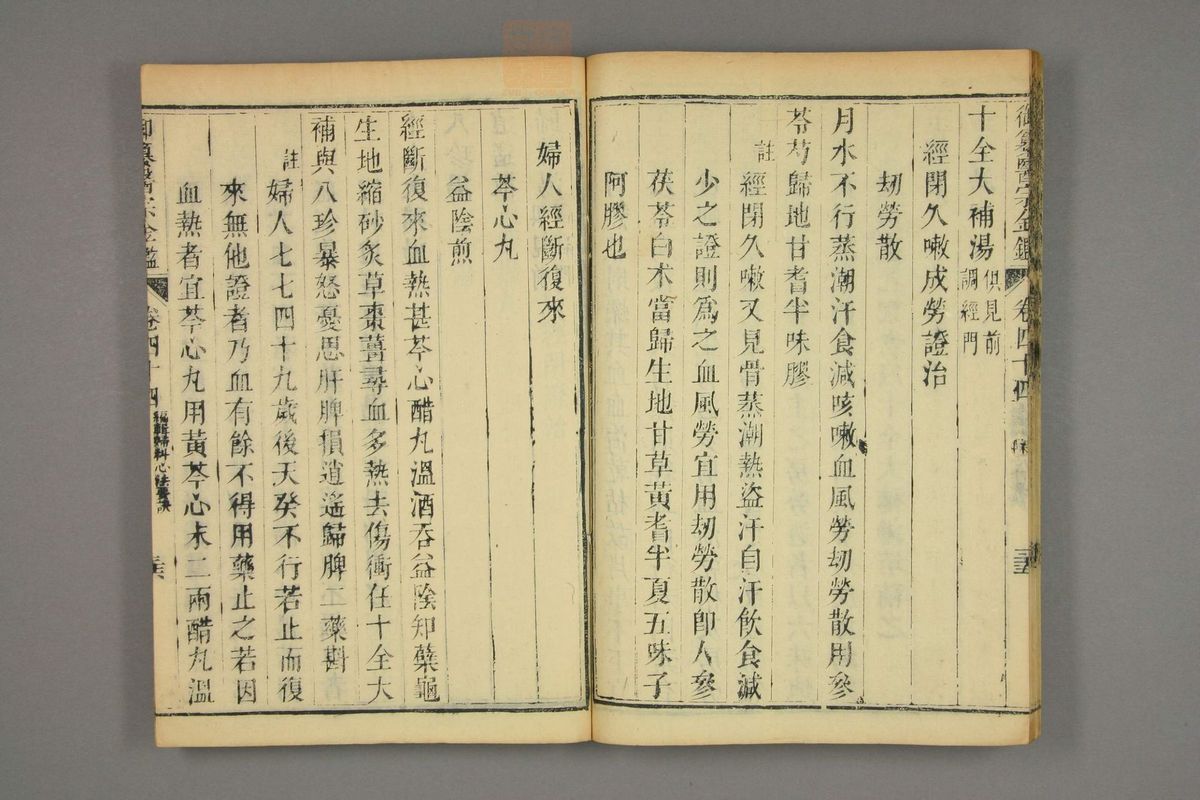 十全大補湯 俱見前調經門
經閉久嗽成勞證治
劫勞散
月水不行蒸潮汗食減咳嗽血風勞劫勞散用參
苓芍歸地甘耆半味膠
註 經閉久嗽又見骨蒸潮熱盜汗自汗飲食減
少之證則為之血風勞宜用劫勞散卽人參
茯苓白术當歸生地甘草黃耆半夏五味子
阿膠也
婦人經斷復來
芩心丸
益陰煎
經斷復來血熱甚芩心醋丸溫酒吞益陰知蘗龜
生地縮砂炙草棗薑尋血多熱去傷衝任十全大
補與八珍暴怒憂思肝脾損逍遙歸脾二藥斟
註 婦人七七四十九歲後天癸不行若止而復
來無他證者乃血有餘不得用藥止之若因
血熱者宜芩心丸用黃芩心末二兩醋丸溫
御纂醫宗金鑑 卷四十四 編輯婦科心法要訣 三六